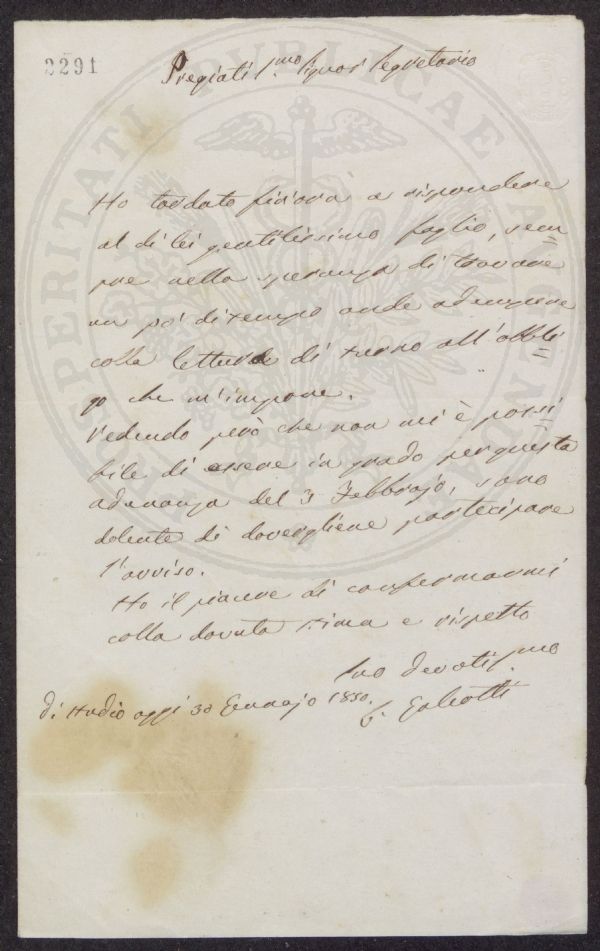 2291
Pregiatis.mo Signor Segretario
Ho tardato finora a rispondere
al di lei gentilissimo foglio, sem=
pre nella speranza di trovare
un po' di tempo onde adempiere
colla lettura di turno all'obbli=
go che m'impone.
Vedendo però che non mi è possi
bile di essere in grado per questa
adunanza del 3 Febbrajo, sono
dolente di dovergliene partecipare
l'avviso.
Ho il piacere di confermarmi
colla dovuta stima e rispetto
Suo devotis.mo
Di studio oggi 30 Gennajo 1850.
G. Galeotti
PROSPERITATI PUBLICAE AUGENDAE